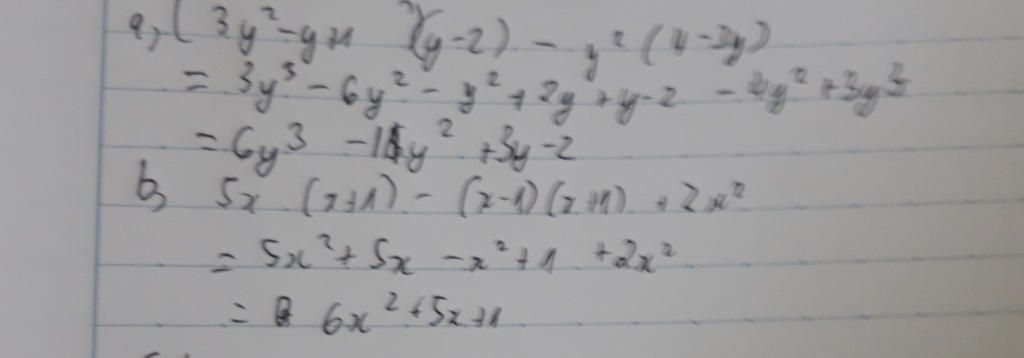 a, (3y² - y + 1)(y - 2) - y² (4 - 3y)
= 3y³ - 6y² - y² + 2y + y - 2 - 4y² + 3y³
= 6y³ - 11y² + 3y - 2
b, 5x (x + 1) - (x - 1)(x + 1) + 2x²
= 5x² + 5x - x² + 1 + 2x²
= 6x² + 5x + 1